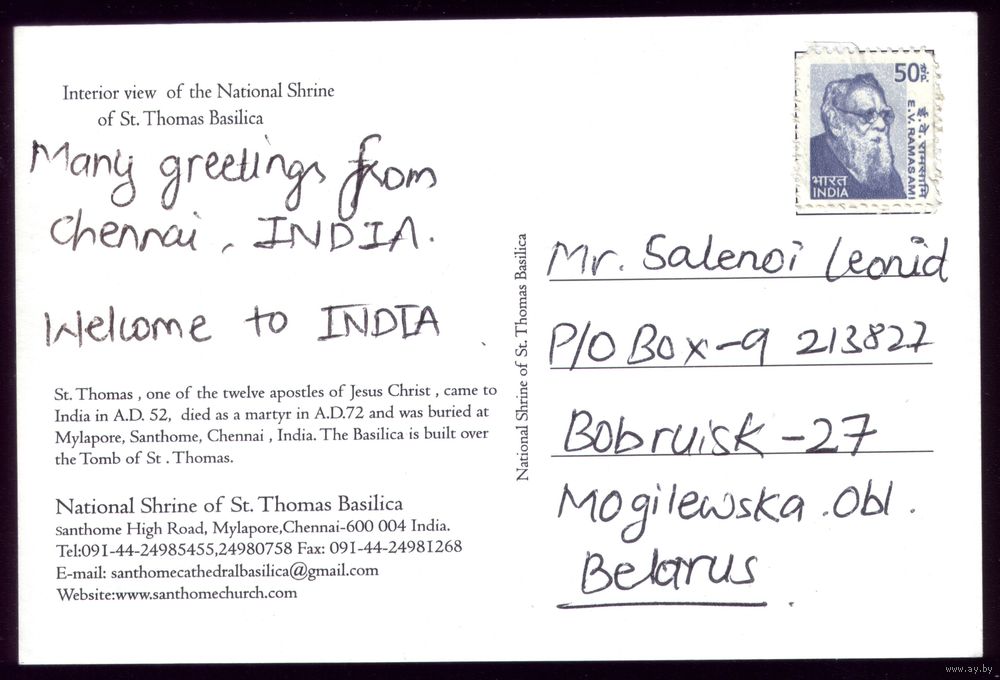 Interior view of the National Shrine
of St. Thomas Basilica
Many greetings from
Chennai, INDIA.
Welcome to INDIA
St. Thomas , one of the twelve apostles of Jesus Christ , came to
India in A.D. 52, died as a martyr in A.D.72 and was buried at
Mylapore, Santhome, Chennai , India. The Basilica is built over
the Tomb of St . Thomas.
National Shrine of St. Thomas Basilica
santhome High Road, Mylapore,Chennai-600 004 India.
Tel:091-44-24985455,24980758 Fax: 091-44-24981268
E-mail: santhomecathedralbasilica@gmail.com
Website:www.santhomechurch.com
National Shrine of St. Thomas Basilica
50
ई. वे. रामसामि
E.V. RAMASAMI
भारत
INDIA
Mr. Salenoi Leonid
P/O Box-9 213827
Bobruisk -27
Mogilewska .Obl .
Belarus .
www.ay.by